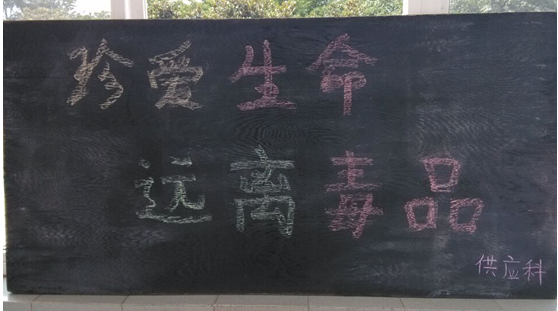 珍爱生命
远离毒品
供应科